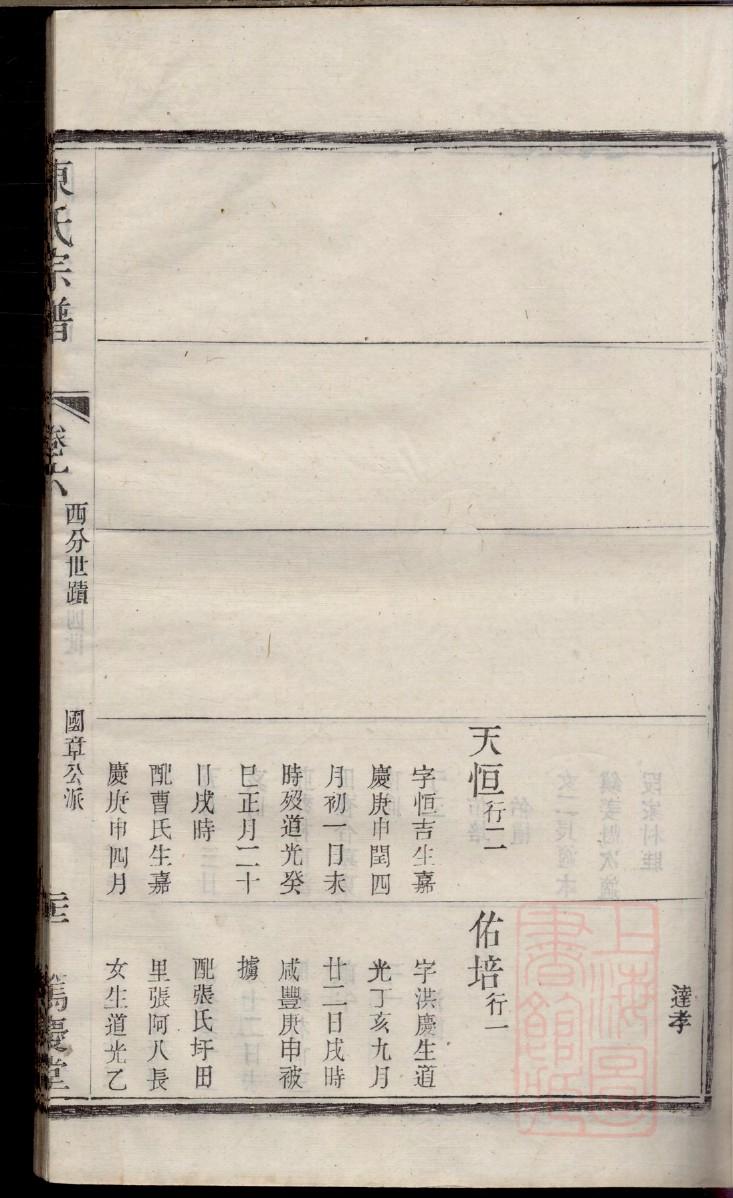 達孝
天恒行二
字恒吉生嘉
慶庚申閏四
月初一日未
時歿道光癸
巳正月二十
日戌時
配曹氏生嘉
慶庚申四月
佑培行一
字洪慶生道
光丁亥九月
廿二日戌時
咸豐庚申被
擄
配張氏圩田
里張阿八長
女生道光乙
陳氏宗譜
卷六
西分世蹟
國章公派
篤慶堂
上海圖書館藏